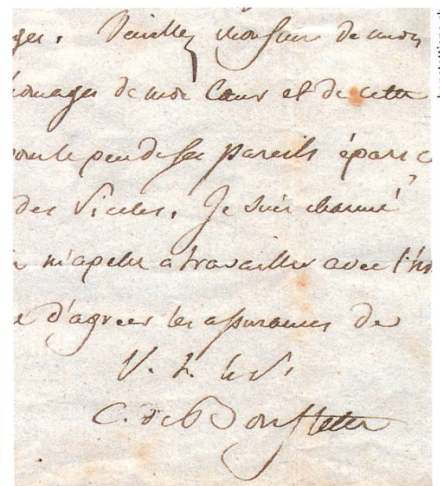 Veuillez Monsieur de mon
homages de mon Cœur et de cette
pour le peu de ses pareils épars
des Siecles. Je suis charmé
m'apelle a travailler avec
d'agreer les assurances de
V. h.
C. de Bonstetten